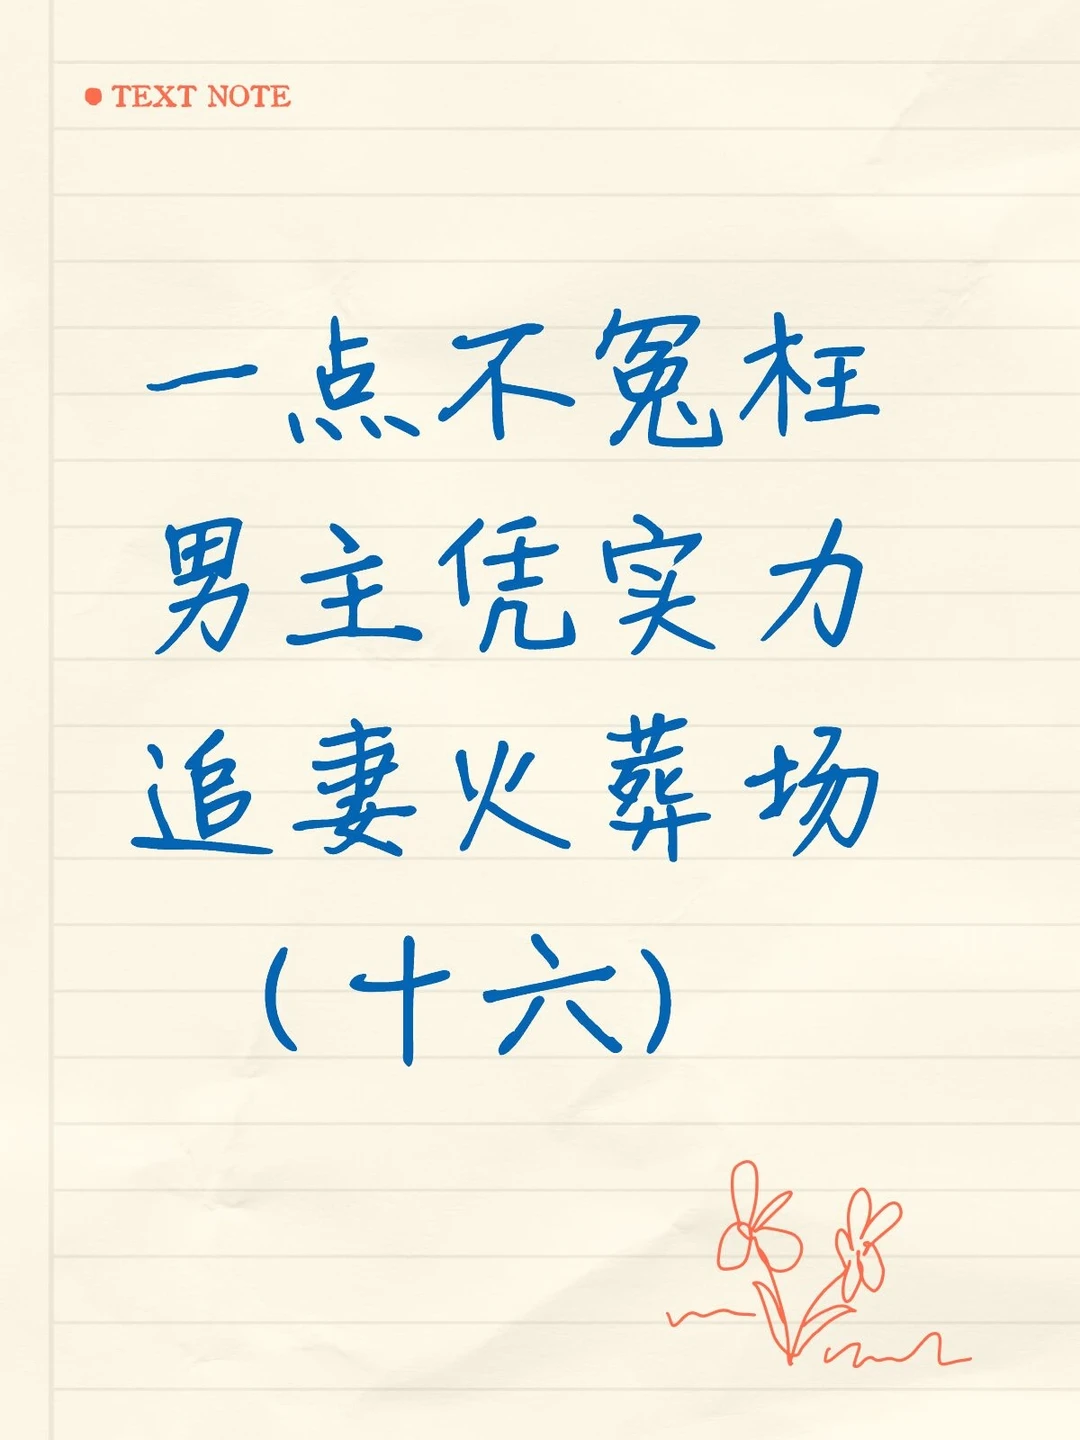 TEXT NOTE
一点不冤枉
男主凭实力
追妻火葬场
(十六)